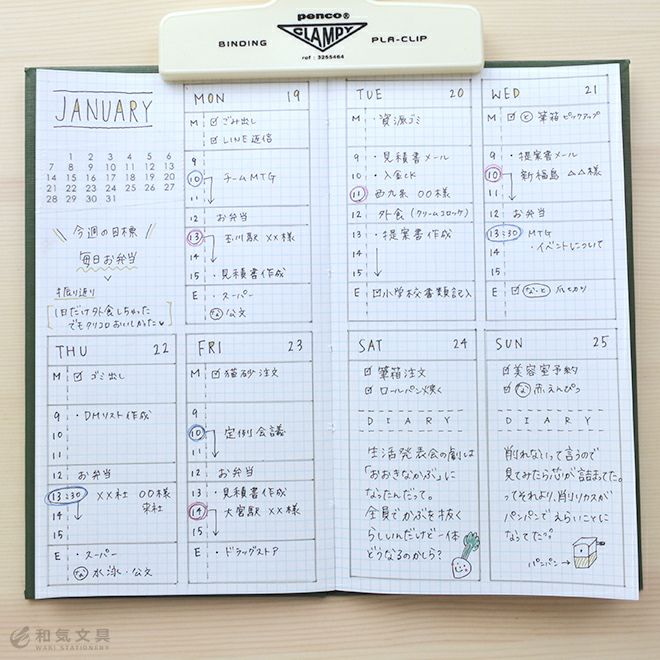 penco®
CLAMPY
BINDING
PLA-CLIP
ref : 3255464
JANUARY
1 2 3 4 5 6
7 8 9 10 11 12 13
14 15 16 17 18 19 20
21 22 23 24 25 26 27
28 29 30 31
今週の目標
毎日お弁当
振り返り
1日だけ外食しちゃった
でもクリコロおいしかった♥
MON 19
M ☑ ごみ出し
☑ LINE返信
9
10 チームMTG
11
12 お弁当
13 玉川駅 ××様
14
15 ・見積書作成
E ・スーパー
な 公文
TUE 20
M ・資源ゴミ
9 ・見積書メール
10 ・入金CK
11 西九条 〇〇様
12 外食(クリームコロッケ)
13 ・提案書作成
14
15
E ☑小学校書類記入
WED 21
M ☑ と 筆箱ピックアップ
9 ・提案書メール
10 新福島 △△様
11
12 お弁当
13:30 MTG
14 ・イベントについて
15
E ☑ な・と 爪切り
THU 22
M ☑ ゴミ出し
9 ・DMリスト作成
10
11
12 お弁当
13:30 ××社 〇〇様
14 来社
15
E ・スーパー
な 水泳・公文
FRI 23
M ☑猫砂注文
9
10 定例会議
11
12 お弁当
13 ・見積書作成
14 大宮駅 ××様
15
E ・ドラッグストア
SAT 24
☑ 筆箱注文
☑ ロールパン焼く
DIARY
生活発表会の劇は
「おおきなかぶ」に
なったんだって。
全員でかぶを抜く
らしいんだけど一体
どうなるのかしら?
SUN 25
☑美容室予約
☑ な 赤えんぴつ
DIARY
削れないって言うので
見てみたら芯が詰まってた。
ってそれより、削りカスが
パンパンでえらいことに
なってた
パンパン→
和気文具
WAKI STATIONERY